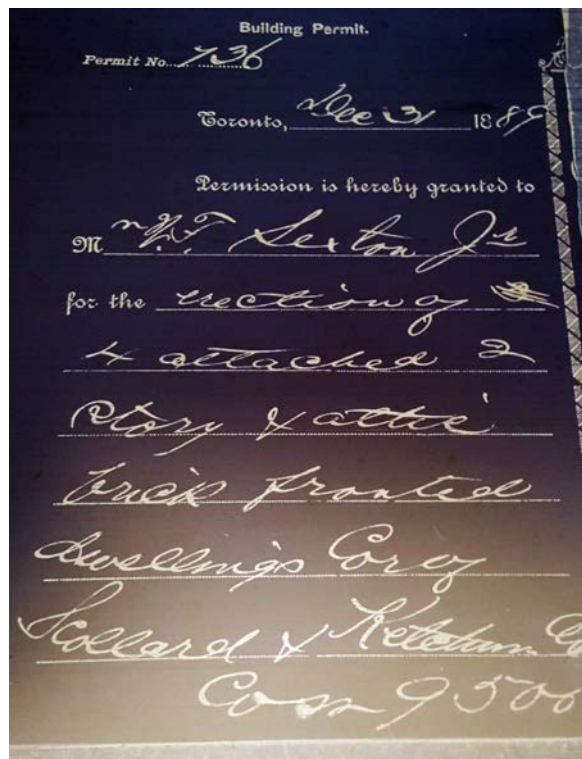 Building Permit.
Permit No. 736
Toronto, Dec 31 1889
Permission is hereby granted to
Mr Sexton Jr
for the erection of
4 attached 2
story & attic
brick fronted
dwellings Cor of
Scollard & Ketchum
Cost 9500